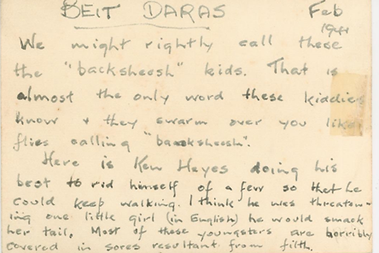 BEIT DARAS Feb
1941
We might rightly call these
the "backsheesh" kids. That is
almost the only word these kiddies
know & they swarm over you like
flies calling "backsheesh".
Here is Ken Heyes doing his
best to rid himself of a few so that he
could keep walking. I think he was threaten-
ing one little girl (in English) he would smack
her tail. Most of these youngsters are horribly
covered in sores resultant from filth.